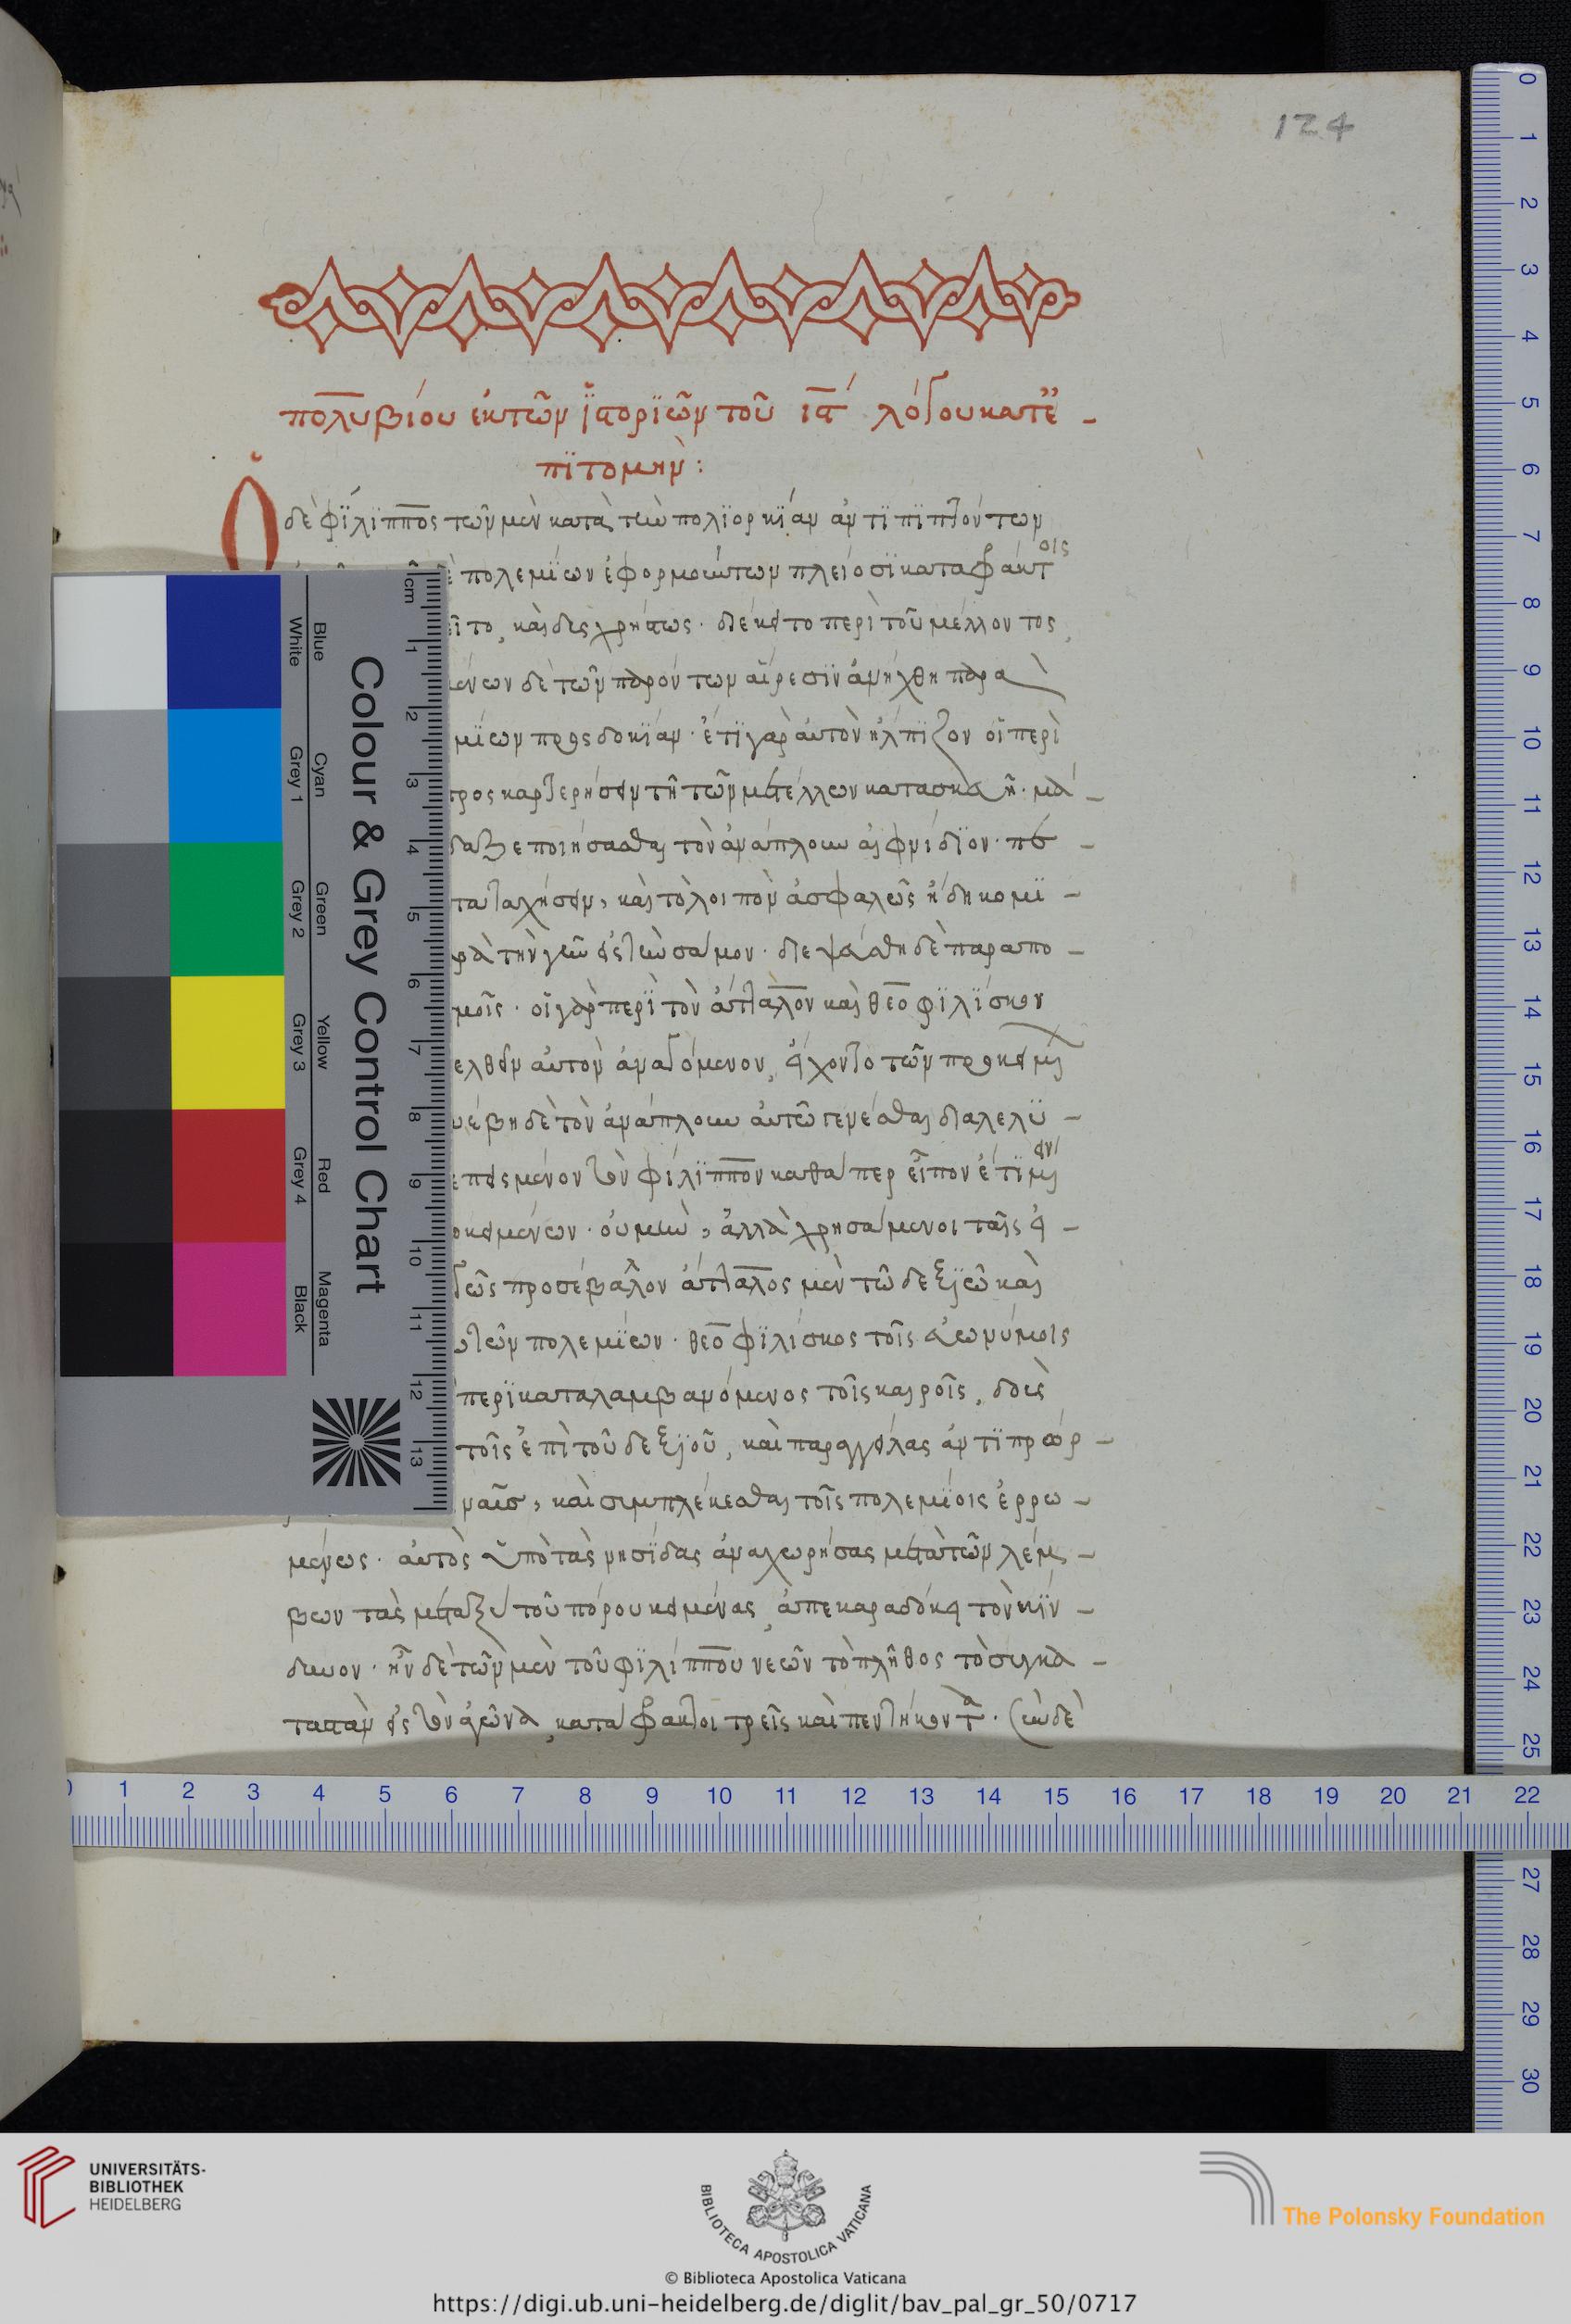 124
πολυβίου ἐκ τῶν ἱστορϊῶν τοῦ ια λόγου κατ ἐ -
πϊτομὴν :
Ὁ δὲ φίλϊππος τῶν μὲν κατὰ τὴν πολϊορκίαν ἀντϊπϊπτόντων
πολεμίων ἐφορμούντων πλείοσϊ καταφράκτοις
καὶ δυσχρήστως · διέκειτο περὶ τοῦ μέλλοντος
δὲ τῶν παρόντων αἵρεσϊν ἀνήχθη παρὰ
προσδοκίαν · ἔτϊ γὰρ αὐτὸν ἤλπϊζον οἱ περὶ
καρτερήσειν τῆ τῶν μετάλλων κατασκευῆ · μά -
ἐποιήσασθαι τὸν ἀνάπλουν αἰφνίδϊον ·
καὶ τὸ λοιπὸν ἀσφαλῶς ἤδη κομϊ -
τὴν γῆν εἰς τὴν σάμον · διεψεύσθη δὲ παρὰ πο -
οἱ γὰρ περὶ τὸν ἄτταλον καὶ θεοφϊλΐσκον
αὐτὸν ἀναγόμενον, εἴχοντο τῶν προκειμένων
δὲ τὸν ἀνάπλουν αὐτῶ γενέσθαι διαλελυ -
τὸν φίλϊππον καθάπερ εἶπον ἔτϊ μένειν
οὐ μὴν, ἀλλὰ χρησάμενοι ταῖς εἰ -
προσέβαλλον ἄτταλος μὲν τῶ δεξϊῶ καὶ
πολεμίων · θεοφϊλίσκος τοῖς εὐωνύμοις
περϊκαταλαμβανόμενος τοῖς καιροῖς, δοὺς
τοῖς ἐπὶ τοῦ δεξϊοῦ, καὶ παραγγείλας ἀντϊπρώρ -
καὶ συμπλέκεσθαι τοῖς πολεμίοις ἐρρω -
μένως · αὐτὸς ὑπὸ τὰς νησΐδας ἀναχωρήσας μετὰ τῶν λέμ -
βων τὰς μεταξὺ τοῦ πόρου κειμένας, ἀπεκαραδόκει τὸν κίν -
δυνον · ἦν δὲ τῶν μὲν τοῦ φϊλίππου νεῶν τὸ πλῆθος τὸ συγκα -
ταστὰν εἰς τὸν ἀγῶνα, κατάφρακτοι τρεῖς καὶ πεντήκοντα · σὺν δὲ
Colour & Grey Control Chart
Blue
Cyan
Green
Yellow
Red
Magenta
White
Grey 1
Grey 2
Grey 3
Grey 4
Black
cm
1 2 3 4 5 6 7 8 9 10 11 12 13
0 1 2 3 4 5 6 7 8 9 10 11 12 13 14 15 16 17 18 19 20 21 22 23 24 25 27 28 29 30
1 2 3 4 5 6 7 8 9 10 11 12 13 14 15 16 17 18 19 20 21 22
UNIVERSITÄTS-
BIBLIOTHEK
HEIDELBERG
BIBLIOTECA APOSTOLICA VATICANA
The Polonsky Foundation
© Biblioteca Apostolica Vaticana
https://digi.ub.uni-heidelberg.de/diglit/bav_pal_gr_50/0717